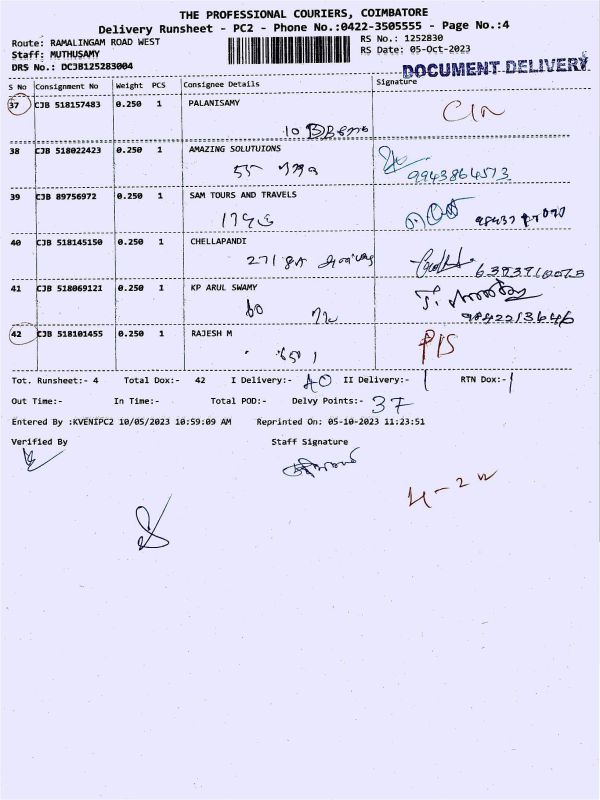 THE PROFESSIONAL COURIERS, COIMBATORE
Delivery Runsheet - PC2 - Phone No.:0422-3505555 - Page No.:4
Route: RAMALINGAM ROAD WEST
RS No.: 1252830
Staff: MUTHUSAMY
RS Date: 05-Oct-2023
DRS No.: DCJB125283004
DOCUMENT DELIVERY
S No Consignment No Weight PCS Consignee Details Signature
37 CJB 518157483 0.250 1 PALANISAMY
10
38 CJB 518022423 0.250 1 AMAZING SOLUTUIONS
55
9943864513
39 CJB 89756972 0.250 1 SAM TOURS AND TRAVELS
40 CJB 518145150 0.250 1 CHELLAPANDI
271
41 CJB 518069121 0.250 1 KP ARUL SWAMY
9842213646
42 CJB 518101455 0.250 1 RAJESH M
P/S
Tot. Runsheet:- 4 Total Dox:- 42 I Delivery:- 40 II Delivery:- 1 RTN Dox:- 1
Out Time:- In Time:- Total POD:- Delvy Points:- 37
Entered By :KVENIPC2 10/05/2023 10:59:09 AM Reprinted On: 05-10-2023 11:23:51
Verified By Staff Signature